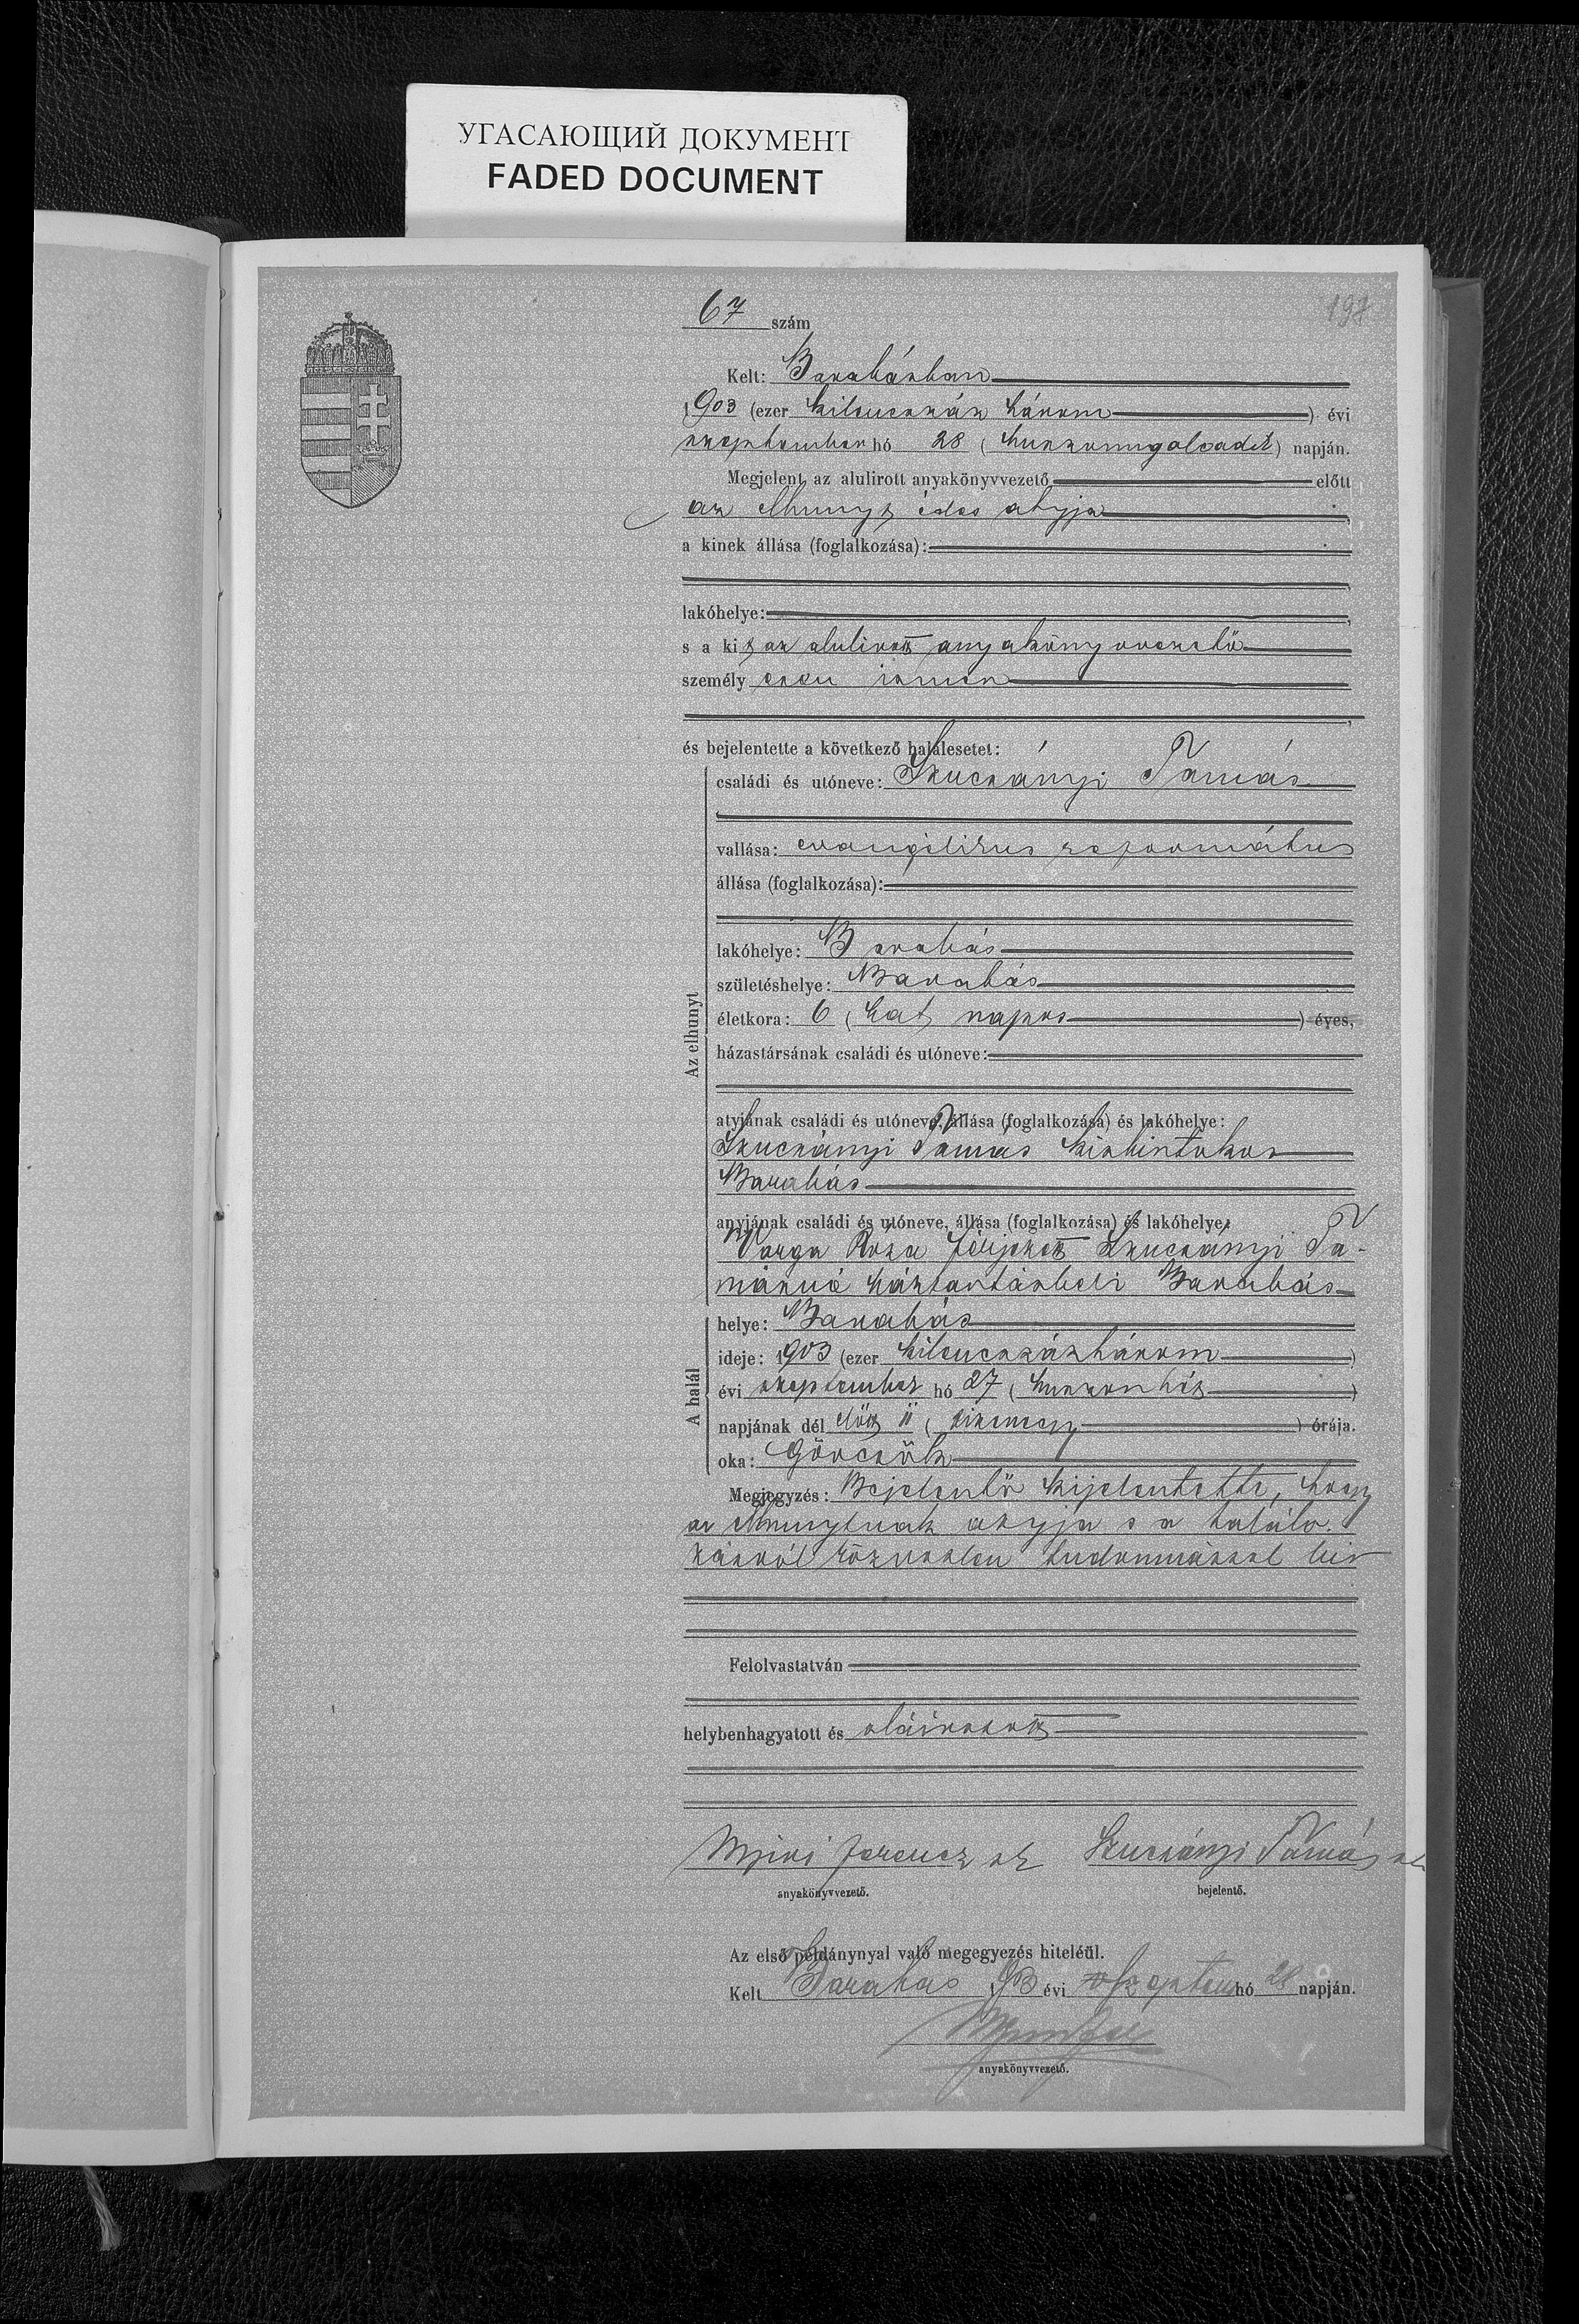 УГАСАЮЩИЙ ДОКУМЕНТ
FADED DOCUMENT
197
67 szám
Kelt: Barabásban
1903 (ezer kilenczszáz három) évi
szeptember hó 28 (huszonnyolcadik) napján.
Megjelent az alulirott anyakönyvvezető előtt
az elhunyt édes atyja,
a kinek állása (foglalkozása):
lakóhelye:
s a kit az alulirott anyakönyvvezető
személyesen ismer
és bejelentette a következő halálesetet:
Az elhunyt
családi és utóneve: Szucsányi Tamás
vallása: evangélikus református
állása (foglalkozása):
lakóhelye: Barabás
születéshelye: Barabás
életkora: 6 (hat napos) éves,
házastársának családi és utóneve:
atyjának családi és utóneve, állása (foglalkozása) és lakóhelye:
Szucsányi Tamás kisbirtokos
Barabás
anyjának családi és utóneve, állása (foglalkozása) és lakóhelye:
Varga Róza férjezett Szucsányi Ta-
másné háztartásbeli Barabás
A halál
helye: Barabás
ideje: 1903 (ezer kilenczszázhárom)
évi szeptember hó 27 (huszonhét)
napjának dél előtt 11 (tizenegy) órája.
oka: Görcsök
Megjegyzés: Bejelentő kijelentette, hogy
az elhunytnak atyja s a halálo-
zásról közvetlen tudomással bir
Felolvastatván
helybenhagyatott és aláiratott
Ferencz sk Szucsányi Tamás sk
anyakönyvvezető. bejelentő.
Az első példánynyal való megegyezés hiteléül.
Kelt Barabas 1903 évi szeptem hó 28 napján.
anyakönyvvezető.